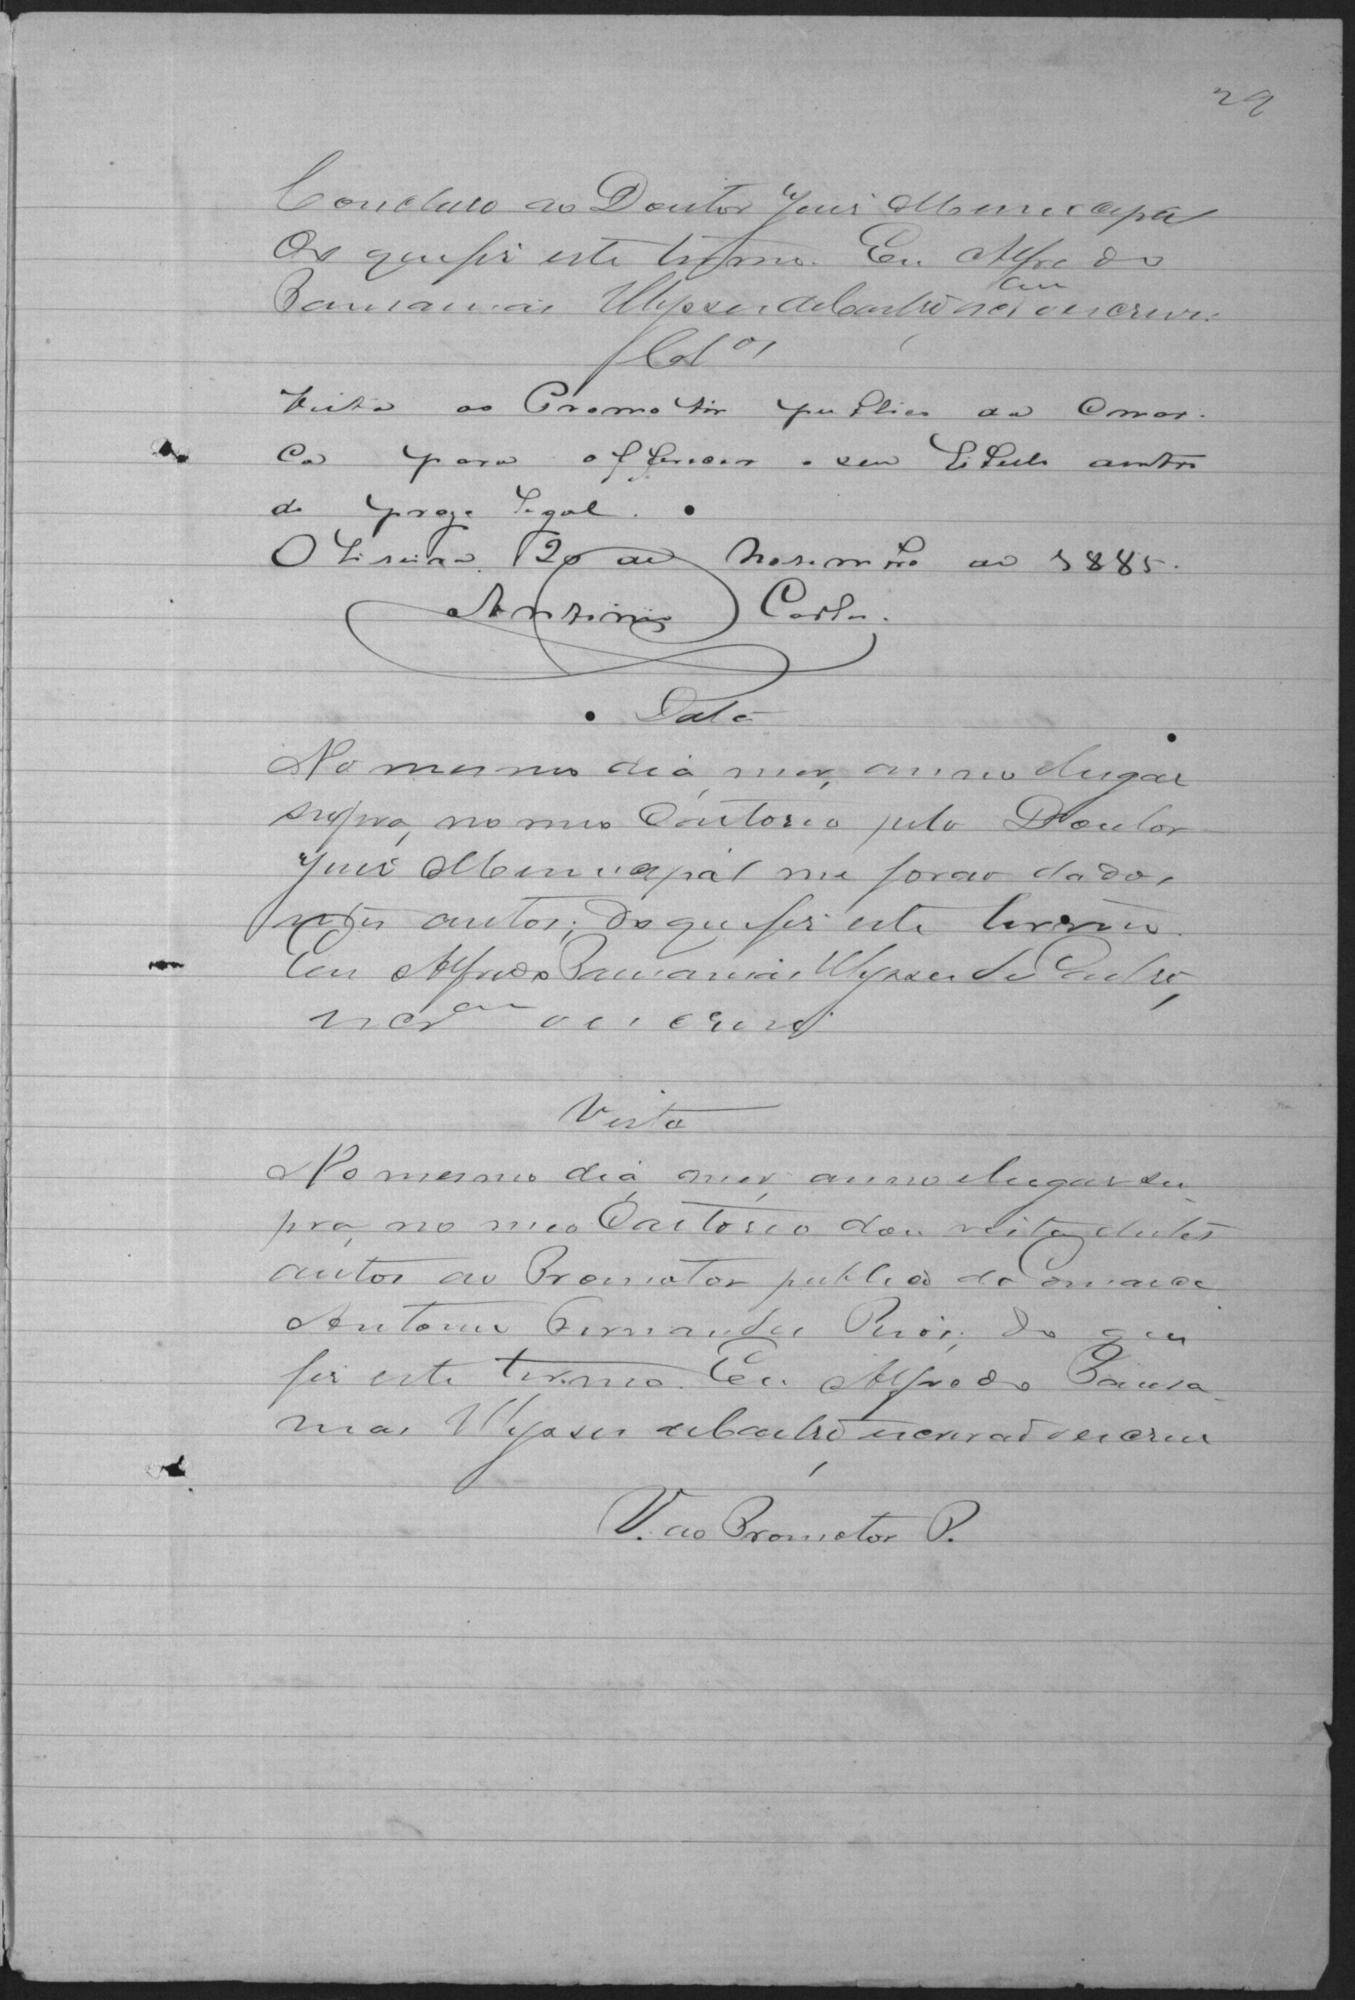 29
Concluso ao Doutor Juiz Municipal
do que fiz este termo. Eu Alfredo
Pausanias Ulysses de Castro escr.am o escrevi.
Cl.os
Vista ao Promotor publico da Comar-
ca para offerecer o seu libello dentro
do prazo legal.
Oliveira 20 de Novembro de 1885.
Antonio Costa.
Data
No mesmo dia, mez, anno e lugar
supra, no meo Cartorio pelo Doutor
Juiz Municipal me forão dados
estes autos; do que fiz este termo.
Eu Alfredo Pausanias Ulysses de Castro,
escr.am o escrevi
Vista
No mesmo dia, mez, anno e lugar su-
pra, no meo Cartorio dou vista destes
autos ao Promotor publico da Comarca
Antonio Fernandes; do que
fiz este termo. Eu Alfredo Pausa-
nias Ulysses de Castro, escrivão o escrevi
V. ao Promotor P.